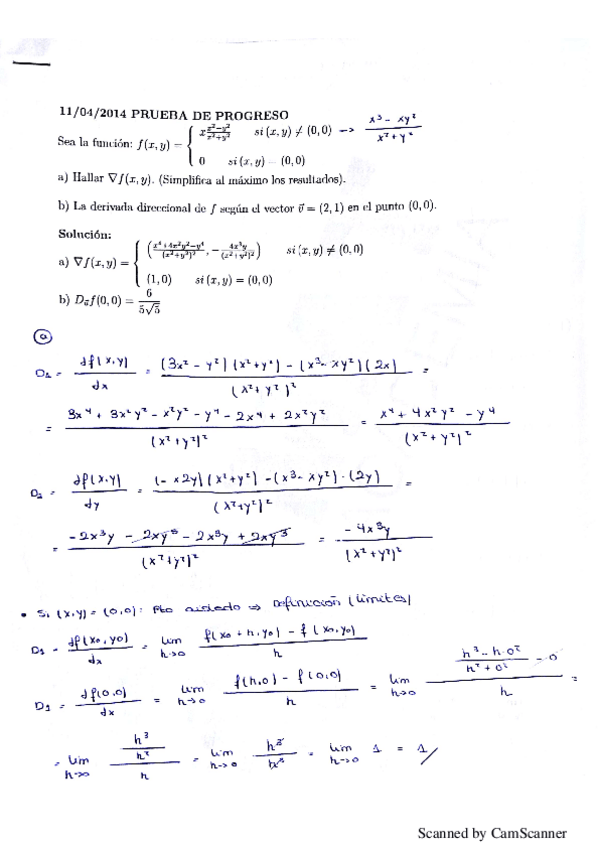 11/04/2014 PRUEBA DE PROGRESO
Sea la función: f(x, y) = { x (x²−y²)/(x²+y²) si (x, y) ≠ (0, 0) --> (x³ - xy²)/(x² + y²)
0 si (x, y) = (0, 0)
a) Hallar ∇f(x, y). (Simplifica al máximo los resultados).
b) La derivada direccional de f según el vector v⃗ = (2, 1) en el punto (0, 0).
Solución:
a) ∇f(x, y) = { ( (x⁴+4x²y²−y⁴)/(x²+y²)², −4x³y/(x²+y²)² ) si (x, y) ≠ (0, 0)
(1, 0) si (x, y) = (0, 0)
b) Dv⃗f(0, 0) = 6/(5√5)
ⓐ
D₁ = df(x,y)/dx = ((3x² - y²)(x²+y²) - (x³ - xy²)(2x))/(x²+y²)² =
= (3x⁴ + 3x²y² - x²y² - y⁴ - 2x⁴ + 2x²y²)/(x²+y²)² = (x⁴ + 4x²y² - y⁴)/(x²+y²)²
D₂ = df(x,y)/dy = ((- x2y)(x²+y²) - (x³ - xy²)·(2y))/(x²+y²)² =
= (-2x³y - 2xy³ - 2x³y + 2xy³)/(x²+y²)² = (-4x³y)/(x²+y²)²
• Si (x,y) = (0,0): Pto aislado ⇒ Definición (límites)
D₁ = df(x₀,y₀)/dx = lim h→0 (f(x₀+h,y₀) - f(x₀,y₀))/h
D₁ = df(0,0)/dx = lim h→0 (f(h,0) - f(0,0))/h = lim h→0 ((h³ - h·0²)/(h² + 0²) - 0)/h =
= lim h→0 (h³/h²)/h = lim h→0 h³/h³ = lim h→0 1 = 1/
Scanned by CamScanner